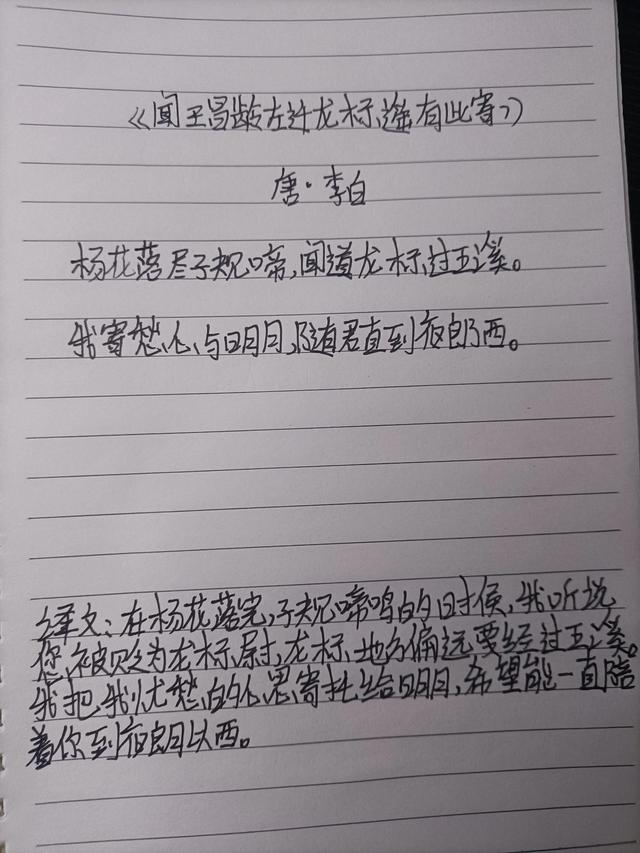 《闻王昌龄左迁龙标遥有此寄》
唐·李白
杨花落尽子规啼,闻道龙标过五溪。
我寄愁心与明月,随君直到夜郎西。
译文:在杨花落完,子规啼鸣的时候,我听说
您被贬为龙标尉,龙标地方偏远要经过五溪。
我把我忧愁的心思寄托给明月,希望能一直陪
着你到夜朗以西。